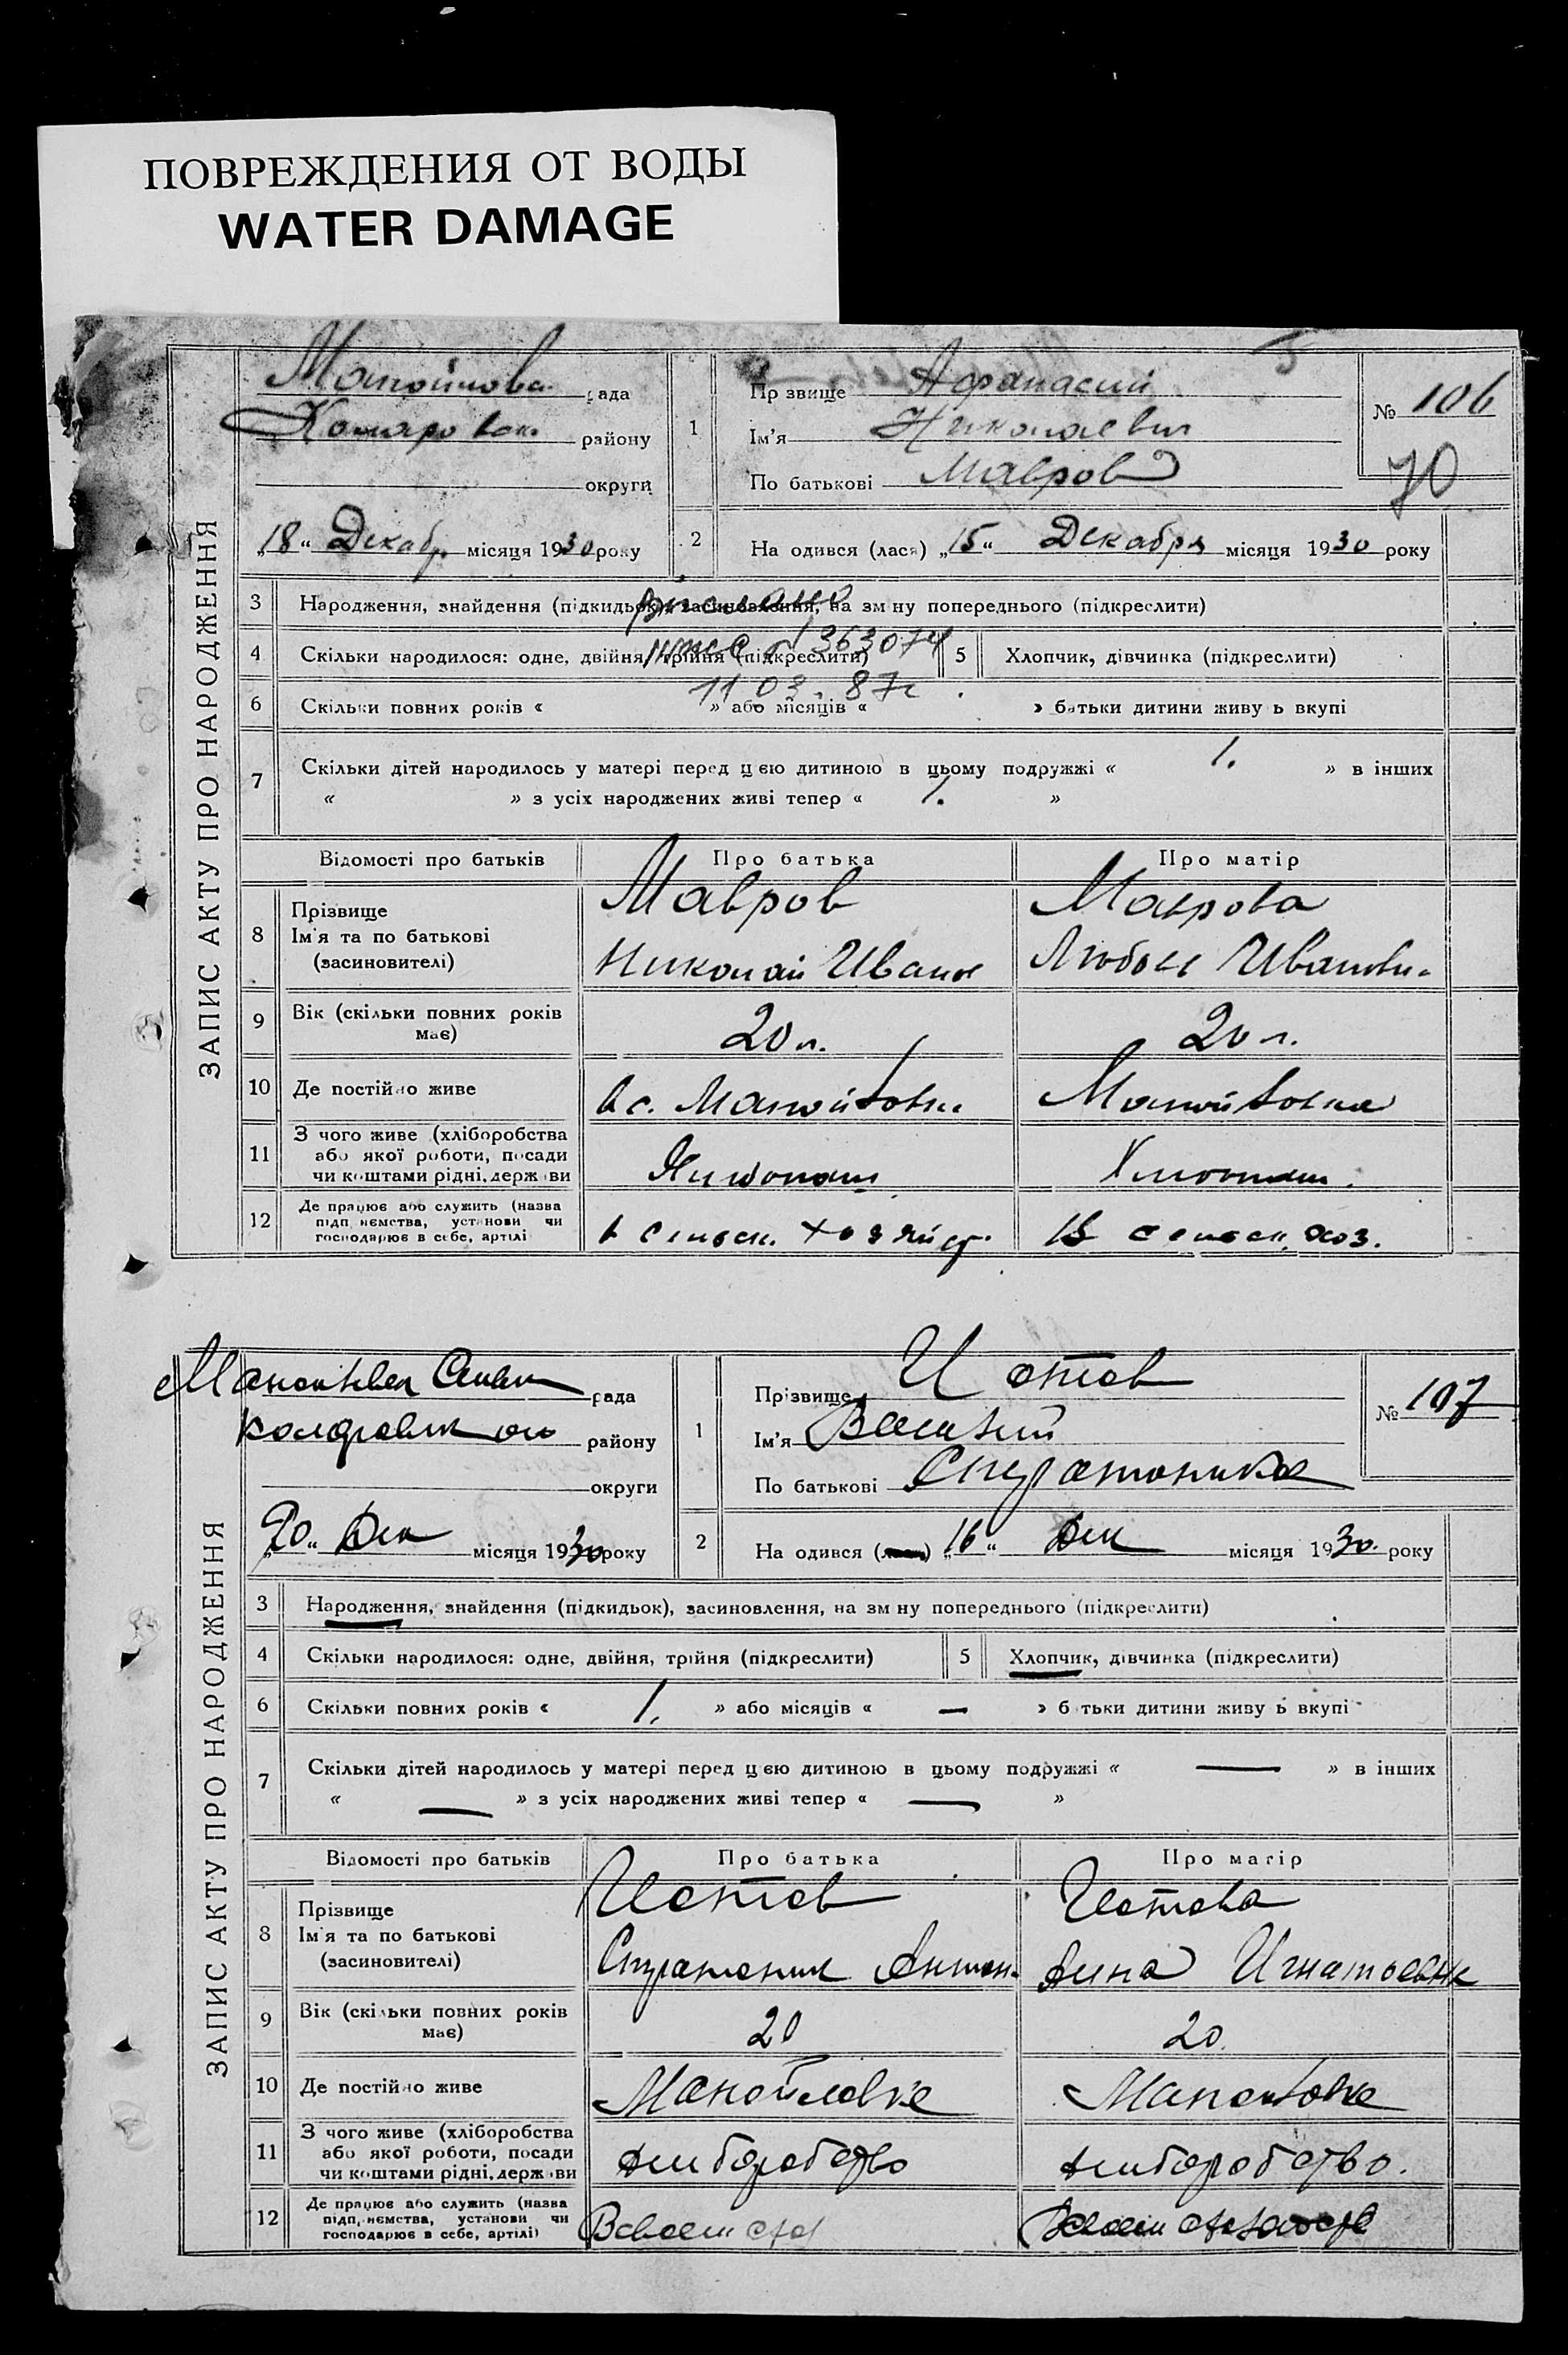 ПОВРЕЖДЕНИЯ ОТ ВОДЫ
WATER DAMAGE
ЗАПИС АКТУ ПРО НАРОДЖЕННЯ
рада
району
округи
"18" Декабр місяця 1930 року
1
Пр звище Афанасий
Ім'я Николаевич
По батькові Мавров
№ 106
70
2 На одився (лася) "15" Декабря місяця 1930 року
3 Народження, знайдення (підкидьок), засиновлення, на зм ну попереднього (підкреслити)
4 Скільки народилося: одне, двійня, трійня (підкреслити)
363074
5 Хлопчик, дівчинка (підкреслити)
11 03. 87г
6 Скільки повних років « » або місяців « » батьки дитини живу ь вкупі
7 Скільки дітей народилось у матері перед цею дитиною в цьому подружжі « 1. » в інших
« » з усіх народжених живі тепер « 1. »
Відомості про батьків Про батька Про матір
8 Прізвище Ім'я та по батькові (засиновителі)
Мавров Маврова
Николай Иванов Любовь Ивановн.
9 Вік (скільки повних років має) 20 л. 20 л.
10 Де постійно живе в с. Манойловке Манойловка
11 З чого живе (хліборобства або якої роботи, посади чи коштами рідні, держ ви
12 Де працює або служить (назва підп иємства, установи чи господарює в себе, артілі
в сельск. хозяйст. В сельск. хоз.
ЗАПИС АКТУ ПРО НАРОДЖЕННЯ
рада
району
округи
"20" Дек місяця 1930 року
1
Прізвище
Ім'я Василий
По батькові
№ 107
2 На одився (лася) "16" Дек місяця 1930. року
3 Народження, знайдення (підкидьок), засиновлення, на зм ну попереднього (підкреслити)
4 Скільки народилося: одне, двійня, трійня (підкреслити)
5 Хлопчик, дівчинка (підкреслити)
6 Скільки повних років « 1. » або місяців « — » б тьки дитини живу ь вкупі
7 Скільки дітей народилось у матері перед цею дитиною в цьому подружжі « — » в інших
« — » з усіх народжених живі тепер « — »
Відомості про батьків Про батька Про матір
8 Прізвище Ім'я та по батькові (засиновителі)
Анна Игнатьевна
9 Вік (скільки повних років має) 20 20.
10 Де постійно живе Манойловке Манойловке
11 З чого живе (хліборобства або якої роботи, посади чи коштами рідні, держ ви
хлиборобство хлиборобство.
12 Де працює або служить (назва підп иємства, установи чи господарює в себе, артілі)